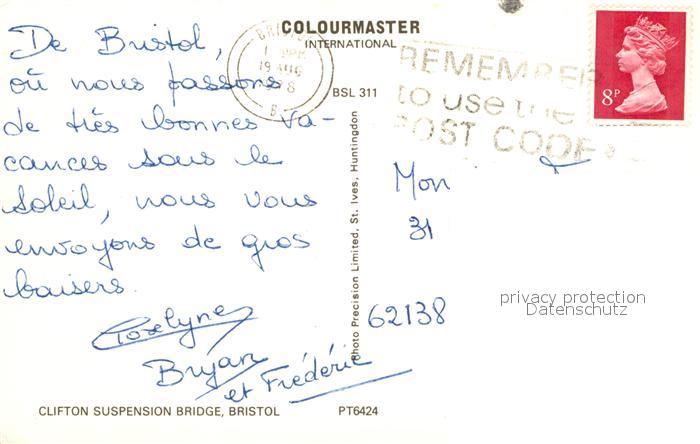 De Bristol,
où nous passons
de très bonnes va-
cances sous le
soleil, nous vous
envoyons de gros
baisers.
Roselyne
Bryan
et Frédéric
CLIFTON SUSPENSION BRIDGE, BRISTOL
COLOURMASTER
INTERNATIONAL
BSL 311
Photo Precision Limited, St. Ives, Huntingdon
PT6424
19 AUG
REMEMBER
to use the
POST CODE
8P
Mon
31
62138
privacy protection
Datenschutz